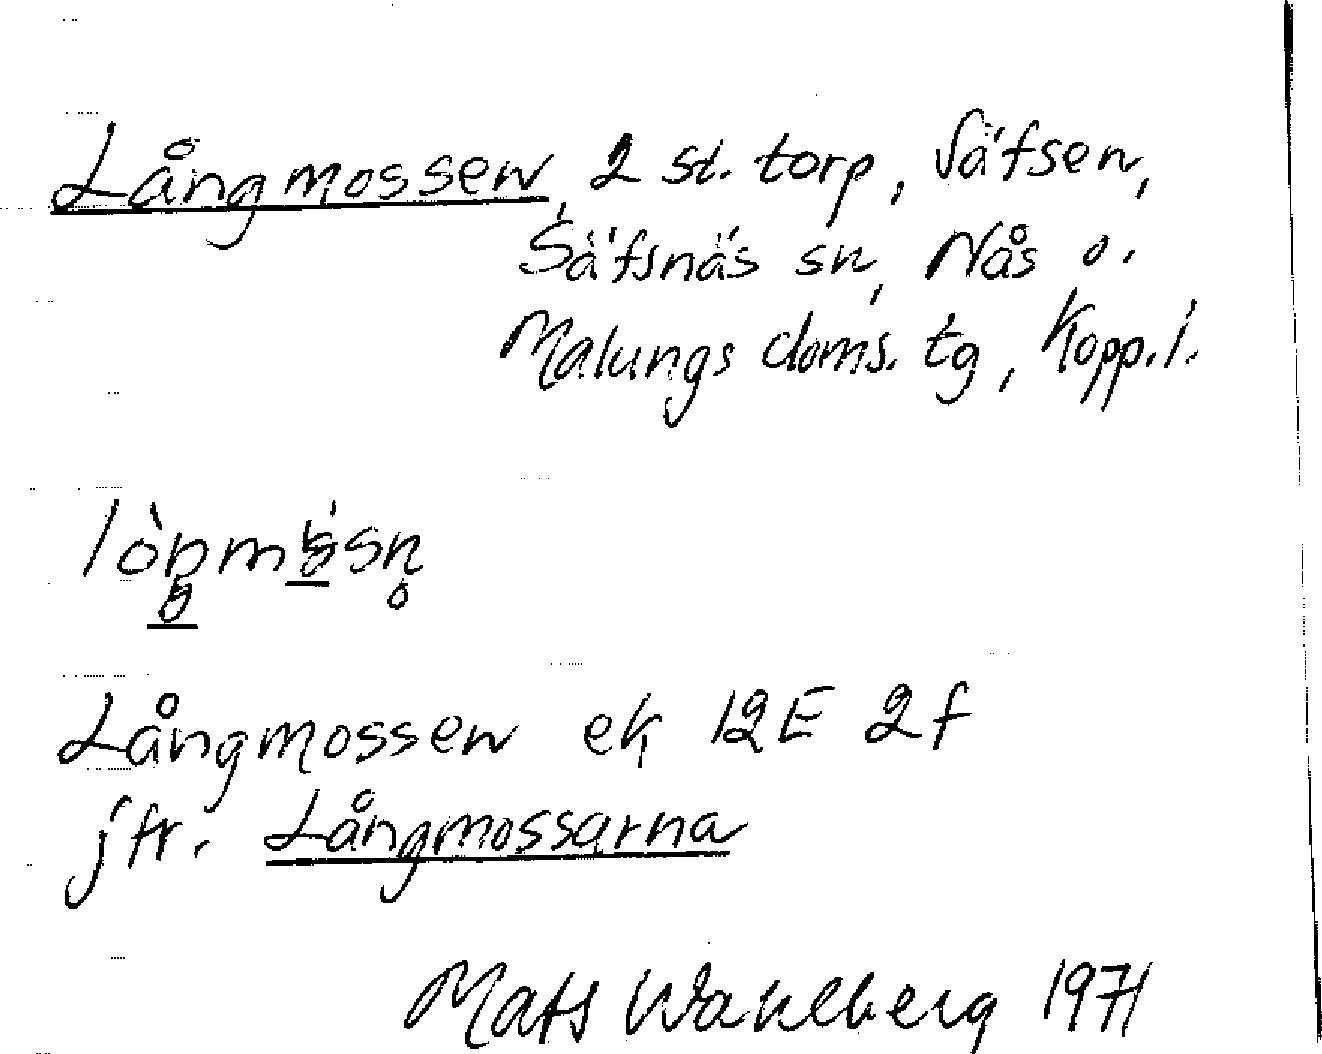 Långmossen, 2 st. torp, Säfsen,
Säfsnäs sn, Nås o.
Malungs doms. tg, Kopp. l.
Långmossen ek 12E 2f
jfr. Långmossarna
Mats Wahlberg 1971